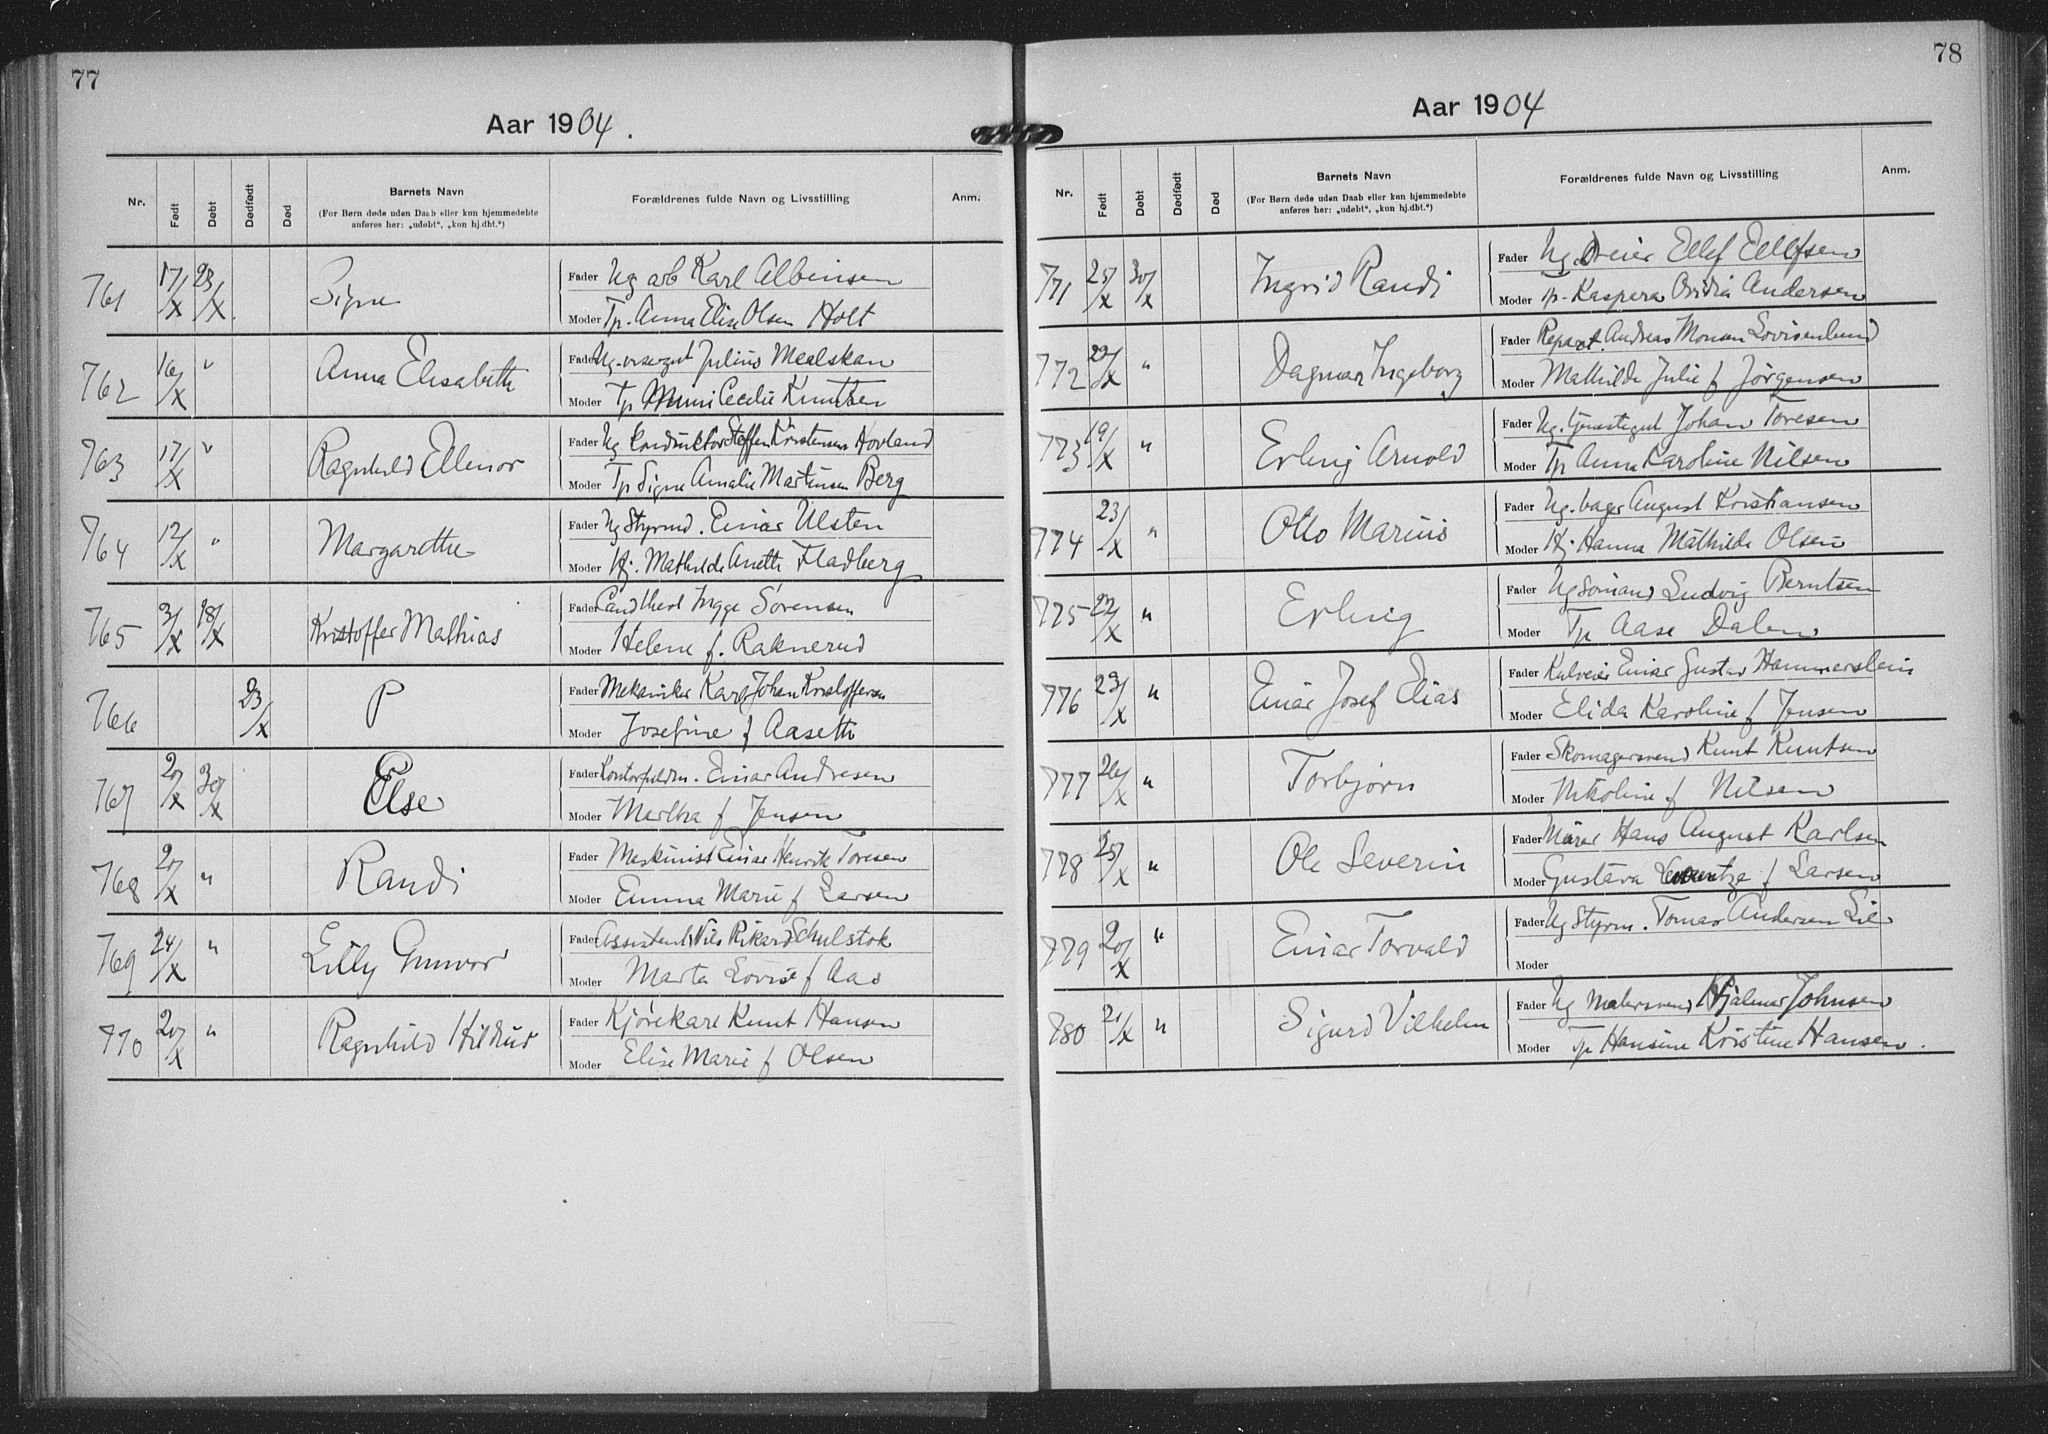 77
Aar 1904.
Nr. Født Døbt Dødfødt Død Barnets Navn Forældrenes fulde Navn og Livsstilling Anm.
(For Børn døde uden Daab eller kun hjemmedøbte
anføres her: „udøbt“, „kun hj.dbt.“)
Fader Ug arb Karl Albinsen
761 17/X 23/X. Signe
Moder Tp. Anna Elise Olsen Holt
Fader Ug. Julius Mealskan
762 16/X " Anna Elisabeth
Moder Tp Cecilie Knutsen
Fader Ug Konduktør Steffen Kristensen Hovland
763 17/X " Ragnhild Ellenor
Moder Tp Signe Amalie Martinsen Berg
Fader Ug Styrmd. Einar Ulsten
764 12/X " Margarethe
Moder Hj. Mathilde Aneth Fladberg
Fader Cand theol Inge Sørensen
765 3/X 18/X Kristoffer Mathias
Moder Helene f. Raknerud
Fader Mekaniker Karl Johan Kristoffersen
766 23/X P
Moder Josefine f Aaseth
Fader Kontorfuldm. Einar Andresen
767 20/X 30/X Else
Moder Martha f Jensen
Fader Maskinist Einar Henrik Toresen
768 20/X " Randi
Moder Emma Marie f Larsen
Fader Assistent Nils Rikard Schulstok
769 24/X " Lilly Gunvor
Moder Marta Lovise f Aas
Fader Kjørekarl Knut Hansen
770 20/X " Ragnhild Hildur
Moder Elise Marie f Olsen
78
Aar 1904
Nr. Født Døbt Dødfødt Død Barnets Navn Forældrenes fulde Navn og Livsstilling Anm.
(For Børn døde uden Daab eller kun hjemmedøbte
anføres her: „udøbt“, „kun hj.dbt.“)
Fader Ug. Dreier Ellef Ellefsen
771 25/X 30/X Ingrid Randi
Moder Tp. Kaspera Ovidia Andersen
Fader Reparat. Andreas Monsen Lovisenlund
772 22/X " Dagmar Ingeborg
Moder Mathilde Julie f Jørgensen
Fader Ug. tjenestegut Johan Toresen
773 19/X " Erling Arnold
Moder Tp Anna Karoline Nilsen
Fader Ug. bager August Kristiansen
774 23/X " Otto Marius
Moder Hj. Hanna Mathilde Olsen
Fader Ug Sømand Ludvig Berntsen
775 22/X " Erling
Moder Tp Aase Dalen
Fader Einar Gustav Hammerstein
776 23/X " Einar Josef Elias
Moder Elida Karoline f Jensen
Fader Skomagersvend Knut Knutsen
777 26/X " Torbjørn
Moder Nikoline f Nilsen
Fader Murer Hans August Karlsen
778 25/X " Ole Severin
Moder Gustava f Larsen
Fader Ug Styrm. Tomas Andersen Lie
779 20/X " Einar Torvald
Moder
Fader Ug Malersvend Hjalmar Johnsen
780 21/X " Sigurd Vilhelm
Moder Tp Hansine Kristine Hansen.